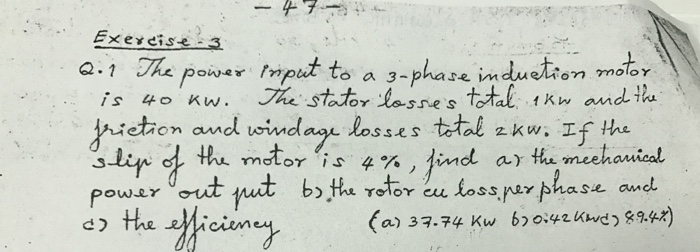 - 47 -
Exercise-3
Q.1 The power input to a 3-phase induction motor
is 40 KW. The stator losses total 1 KW and the
friction and windage losses total 2 KW. If the
slip of the motor is 4%, find a) the mechanical
power out put b) the rotor cu loss per phase and
c) the efficiency (a) 37.74 KW b) 0.42 KW c) 89.4%)